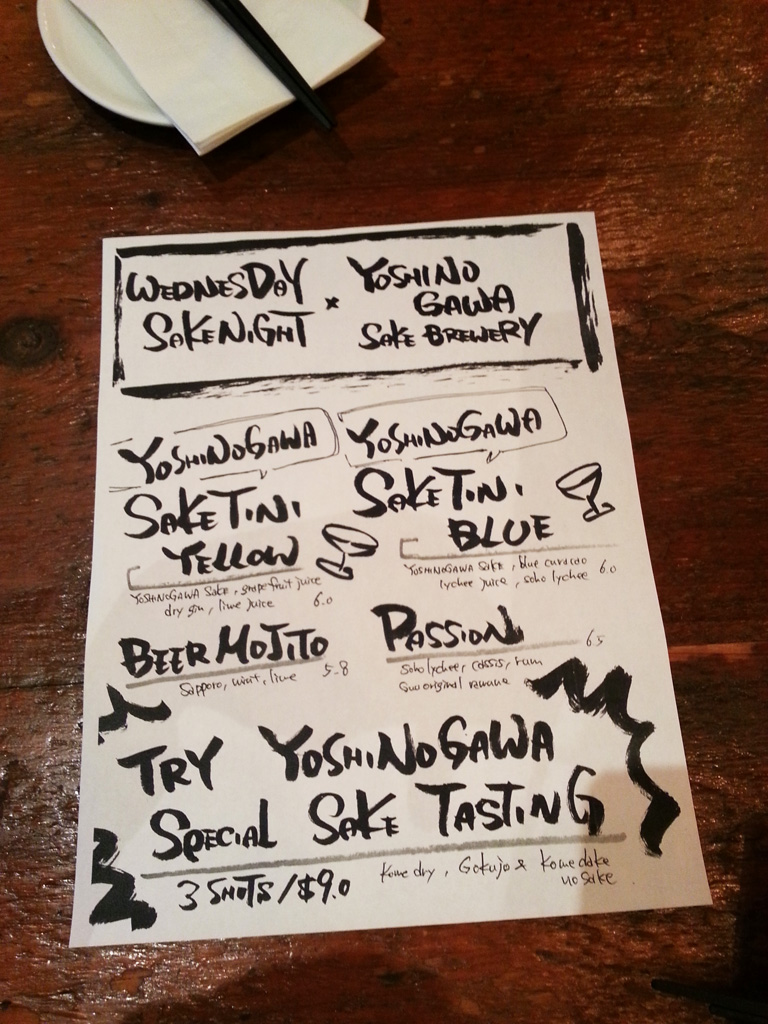 WEDNESDAY
SAKE NIGHT
×
YOSHINO
GAWA
SAKE BREWERY
YOSHINOGAWA
SAKETINI
YELLOW
YOSHINOGAWA Sake, grapefruit juice
dry gin, lime juice 6.0
YOSHINOGAWA
SAKETINI
BLUE
YOSHINOGAWA Sake, blue curacao
lychee juice, soho lychee 6.0
BEER MOJITO
Sapporo, mint, lime 5.8
PASSION
soho lychee, cassis, rum 6.5
original
TRY YOSHINOGAWA
SPECIAL SAKE TASTING
3 SHOTS/$9.0
Kome dry, Gokujo & Kome dake
no Sake